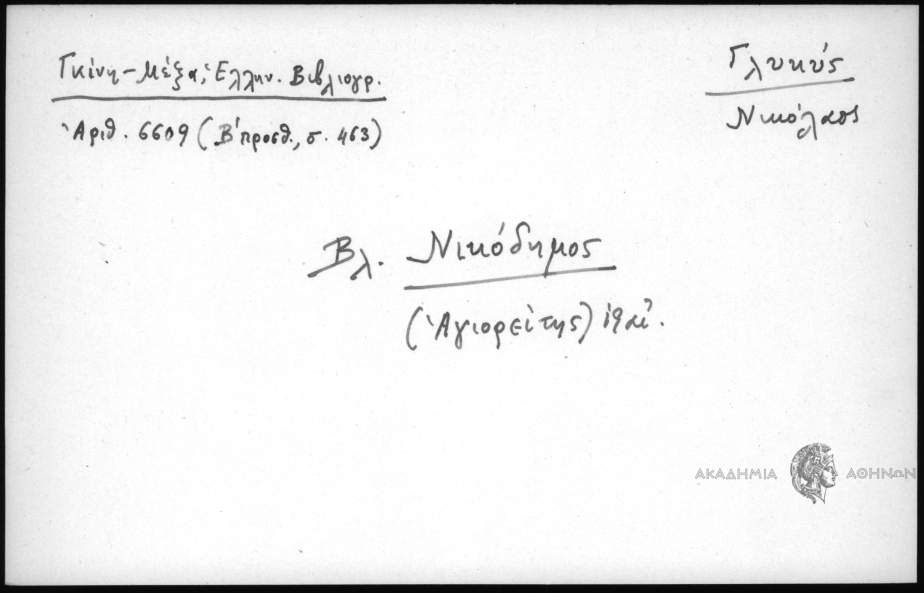 Γκίνη - Μέξα, Ἑλλην. Βιβλιογρ.
Ἀριθ. 6609 (Β' προσθ., σ. 463)
Γλυκύς
Νικόλαος
Βλ. Νικόδημος
(Ἁγιορείτης)
ΑΚΑΔΗΜΙΑ ΑΘΗΝΩΝ